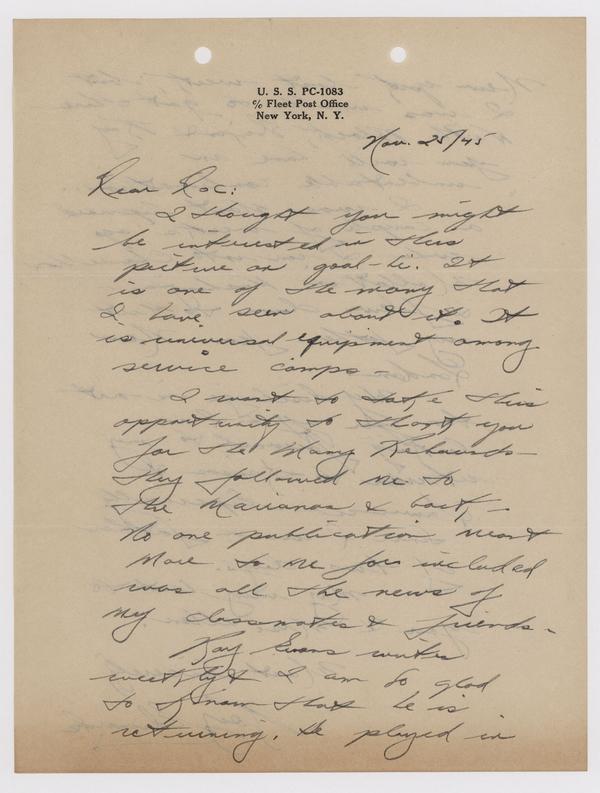 U. S. S. PC-1083
c/o Fleet Post Office
New York, N. Y.
Nov. 25/45
Dear Doc:
I thought you might
be interested in this
picture on goal-hi. It
is one of the many that
I have seen about it. It
is universal equipment among
service camps-
I want to take this
opportunity to thank you
for the Many Rebounds-
They followed me to
the Marianas & back,-
No one publication meant
more to me for included
was all the news of
my classmates & friends-
Ray Evans writes
weekly & I am so glad
to know that he is
returning. He played in